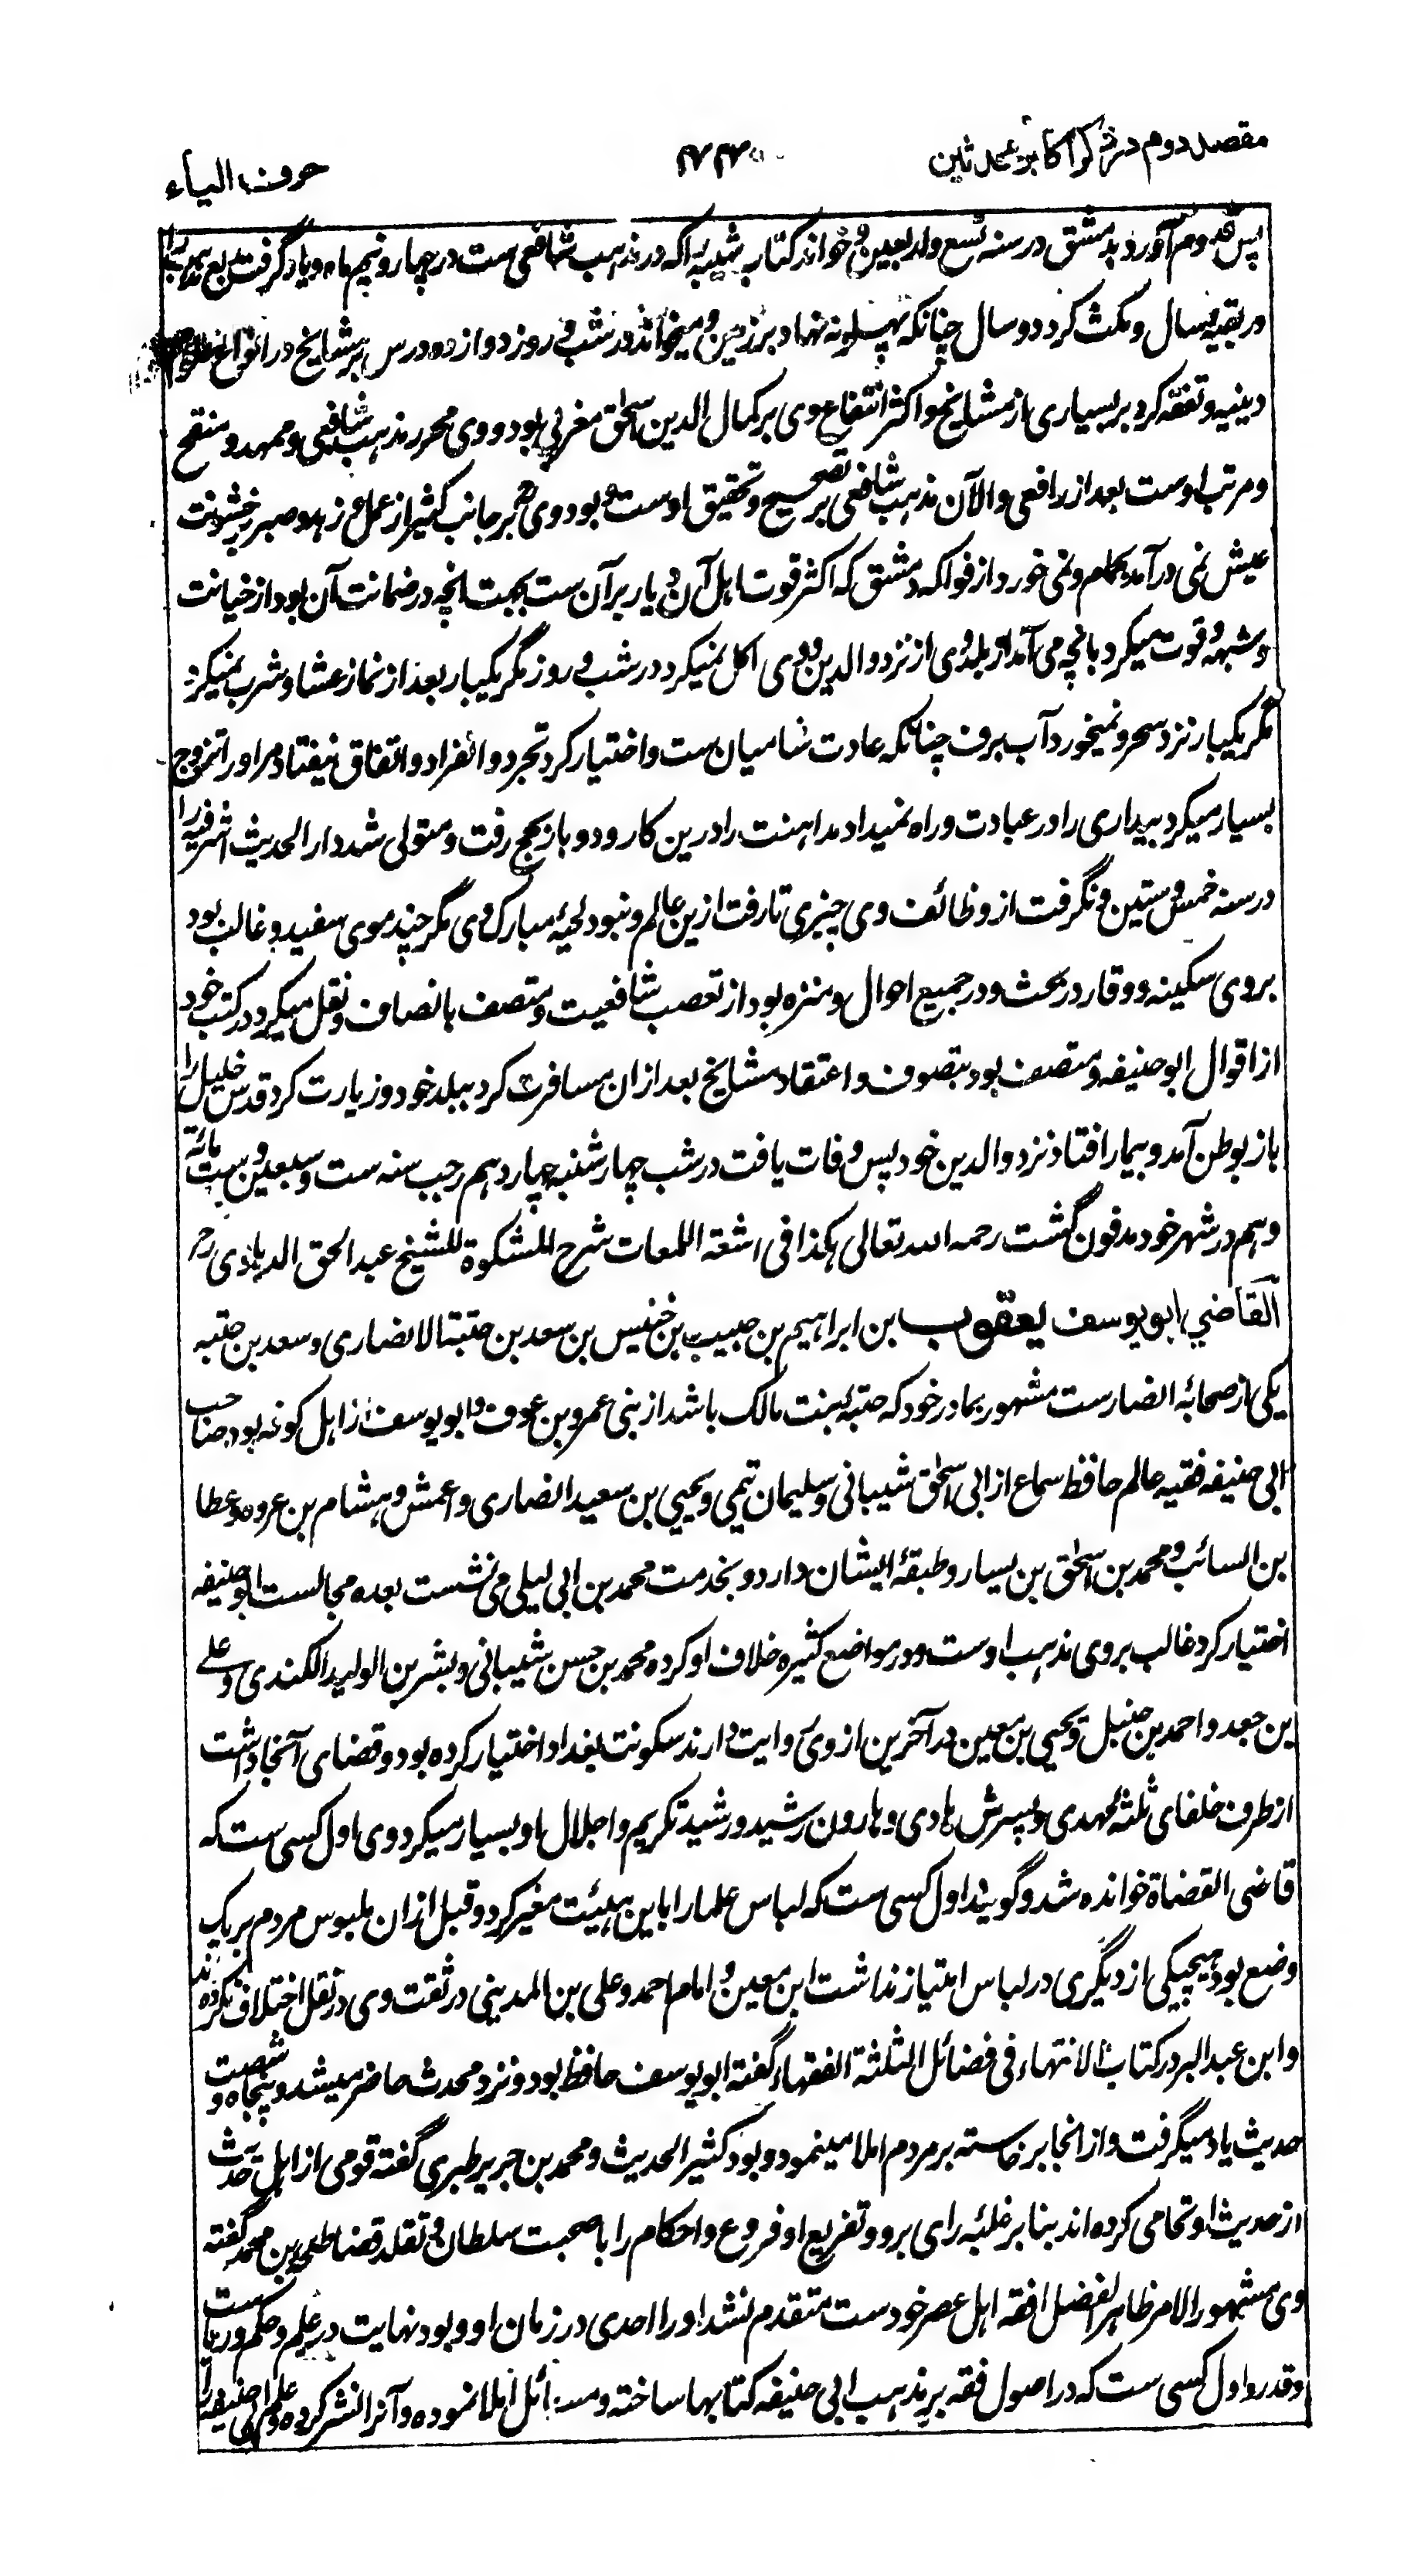 مقصد دوم در ذکر اکابر محدثین
۴۴۰
حرف الیاء
پس قدوم آورد بدمشق در سنه تسع واربعین و خواند کتاب تنبیه را که در مذهب شافعی ست در چهار و نیم ماه و یاد گرفت ربع مهذب را
در بقیه سال و مکث کرد دو سال چنانکه پهلو نه نهاد بر زمین و میخواند در شب و روز دوازده درس بر مشایخ در انواع علوم
دینیه و تفقه کرد بر بسیاری از مشایخ و اکثر انتفاع وی بر کمال الدین اسحٰق مغربی بود و وی محرر مذهب شافعی و ممهد و منقح
و مرتب اوست بعد از رافعی و الآن مذهب شافعی بر تصحیح و تحقیق اوست و بود وی رح بر جانب کثیر از عمل و زهد و صبر بر خشونت
عیش نمی درآمد بحمام و نمی خورد از فواکه دمشق که اکثر قوت اهل آن دیار بر آن ست بجهت انچه در ضمانت آن بود از خیانت
و شبهه و قوت میکرد بانچه می آمد از بلد وی از نزد والدین وی و وی اکل نمیکرد در شب و روز مگر یکبار بعد از نماز عشا و شرب نمیکرد
مگر یکبار نزد سحر و نمیخورد آب برف چنانکه عادت شامیان ست و اختیار کرد تجرد و انفراد و اتفاق نیفتاد مر او را تزوج
بسیار میکرد بیداری را در عبادت و راه نمیداد مداهنت را درین کار و دو بار بحج رفت و متولی شد دار الحدیث اشرفیه را
در سنه خمس و ستین و نگرفت از وظائف وی چیزی تا رفت ازین عالم و نبود لحیهٔ مبارک وی مگر چند موی سفید و غالب بود
بر وی سکینه و وقار در بحث و در جمیع احوال و منزه بود از تعصب شافعیت و متصف بانصاف و نقل میکرد در کتب خود
از اقوال ابو حنیفه و متصف بود بتصوف و اعتقاد مشایخ بعد ازان مسافرت کرد ببلد خود و زیارت کرد قدس خلیل را
باز بوطن آمد و بیمار افتاد نزد والدین خود پس وفات یافت در شب چهارشنبه چهاردهم رجب سنه ست و سبعین و ست مائة
و هم در شهر خود مدفون گشت رحمه الله تعالی هکذا فی اشعة اللمعات شرح المشکوة للشیخ عبد الحق الدهلوی رح
القاضی ابو یوسف یعقوب بن ابراهیم بن حبیب بن خنیس بن سعد بن حتبة الانصاری و سعد بن حتبه
یکی از صحابهٔ انصارست مشهور بمادر خود که حتبه بنت مالک باشد از بنی عمرو بن عوف و ابو یوسف از اهل کوفه بود صاحب
ابی حنیفه فقیه عالم حافظ سماع از ابی اسحٰق شیبانی و سلیمان تیمی و یحیی بن سعید انصاری و اعمش و هشام بن عروه و عطا
بن السائب و محمد بن اسحٰق بن یسار و طبقهٔ ایشان دارد و بخدمت محمد بن ابی لیلی می نشست بعده مجالست ابو حنیفه
اختیار کرد غالب بر وی مذهب اوست و در مواضع کثیره خلاف او کرده محمد بن حسن شیبانی و بشر بن الولید الکندی و علی
بن جعد و احمد بن حنبل و یحیی بن معین در آخرین از وی روایت دارند سکونت بغداد اختیار کرده بود و قضای آنجا داشت
از طرف خلفای ثلثه مهدی و پسرش هادی و هارون رشید و رشید تکریم و اجلال او بسیار میکرد وی اول کسی ست که
قاضی القضاة خوانده شد و گویند اول کسی ست که لباس علما را باین هیئت مغیر کرد و قبل ازان ملبوس مردم بر یک
وضع بود هیچیکی از دیگری در لباس امتیاز نداشت ابن معین و امام احمد و علی بن المدینی در ثقت وی در نقل اختلاف نکرده اند
و ابن عبد البر در کتاب الانتهاء فی فضائل الثلثة الفقهاء گفته ابو یوسف حافظ بود و نزد محدث حاضر میشد و پنجاه و شصت
حدیث یاد میگرفت و از انجا برخاسته بر مردم املا مینمود و بود کثیر الحدیث و محمد بن جریر طبری گفته قومی از اهل حدیث
از حدیث او تحامی کرده اند بنا بر غلبهٔ رای برو و تفریع او فروع و احکام را با صحبت سلطان و تقلد قضا طلحه بن محمد گفته
وی مشهور الامر ظاهر الفضل افقه اهل عصر خودست متقدم نشد او را احدی در زمان او و بود نهایت در علم و حکم و ریاست
و قدر و اول کسی ست که در اصول فقه بر مذهب ابی حنیفه کتابها ساخته و مسائل املا نموده و آنرا نشر کرده و علم ابی حنیفه را